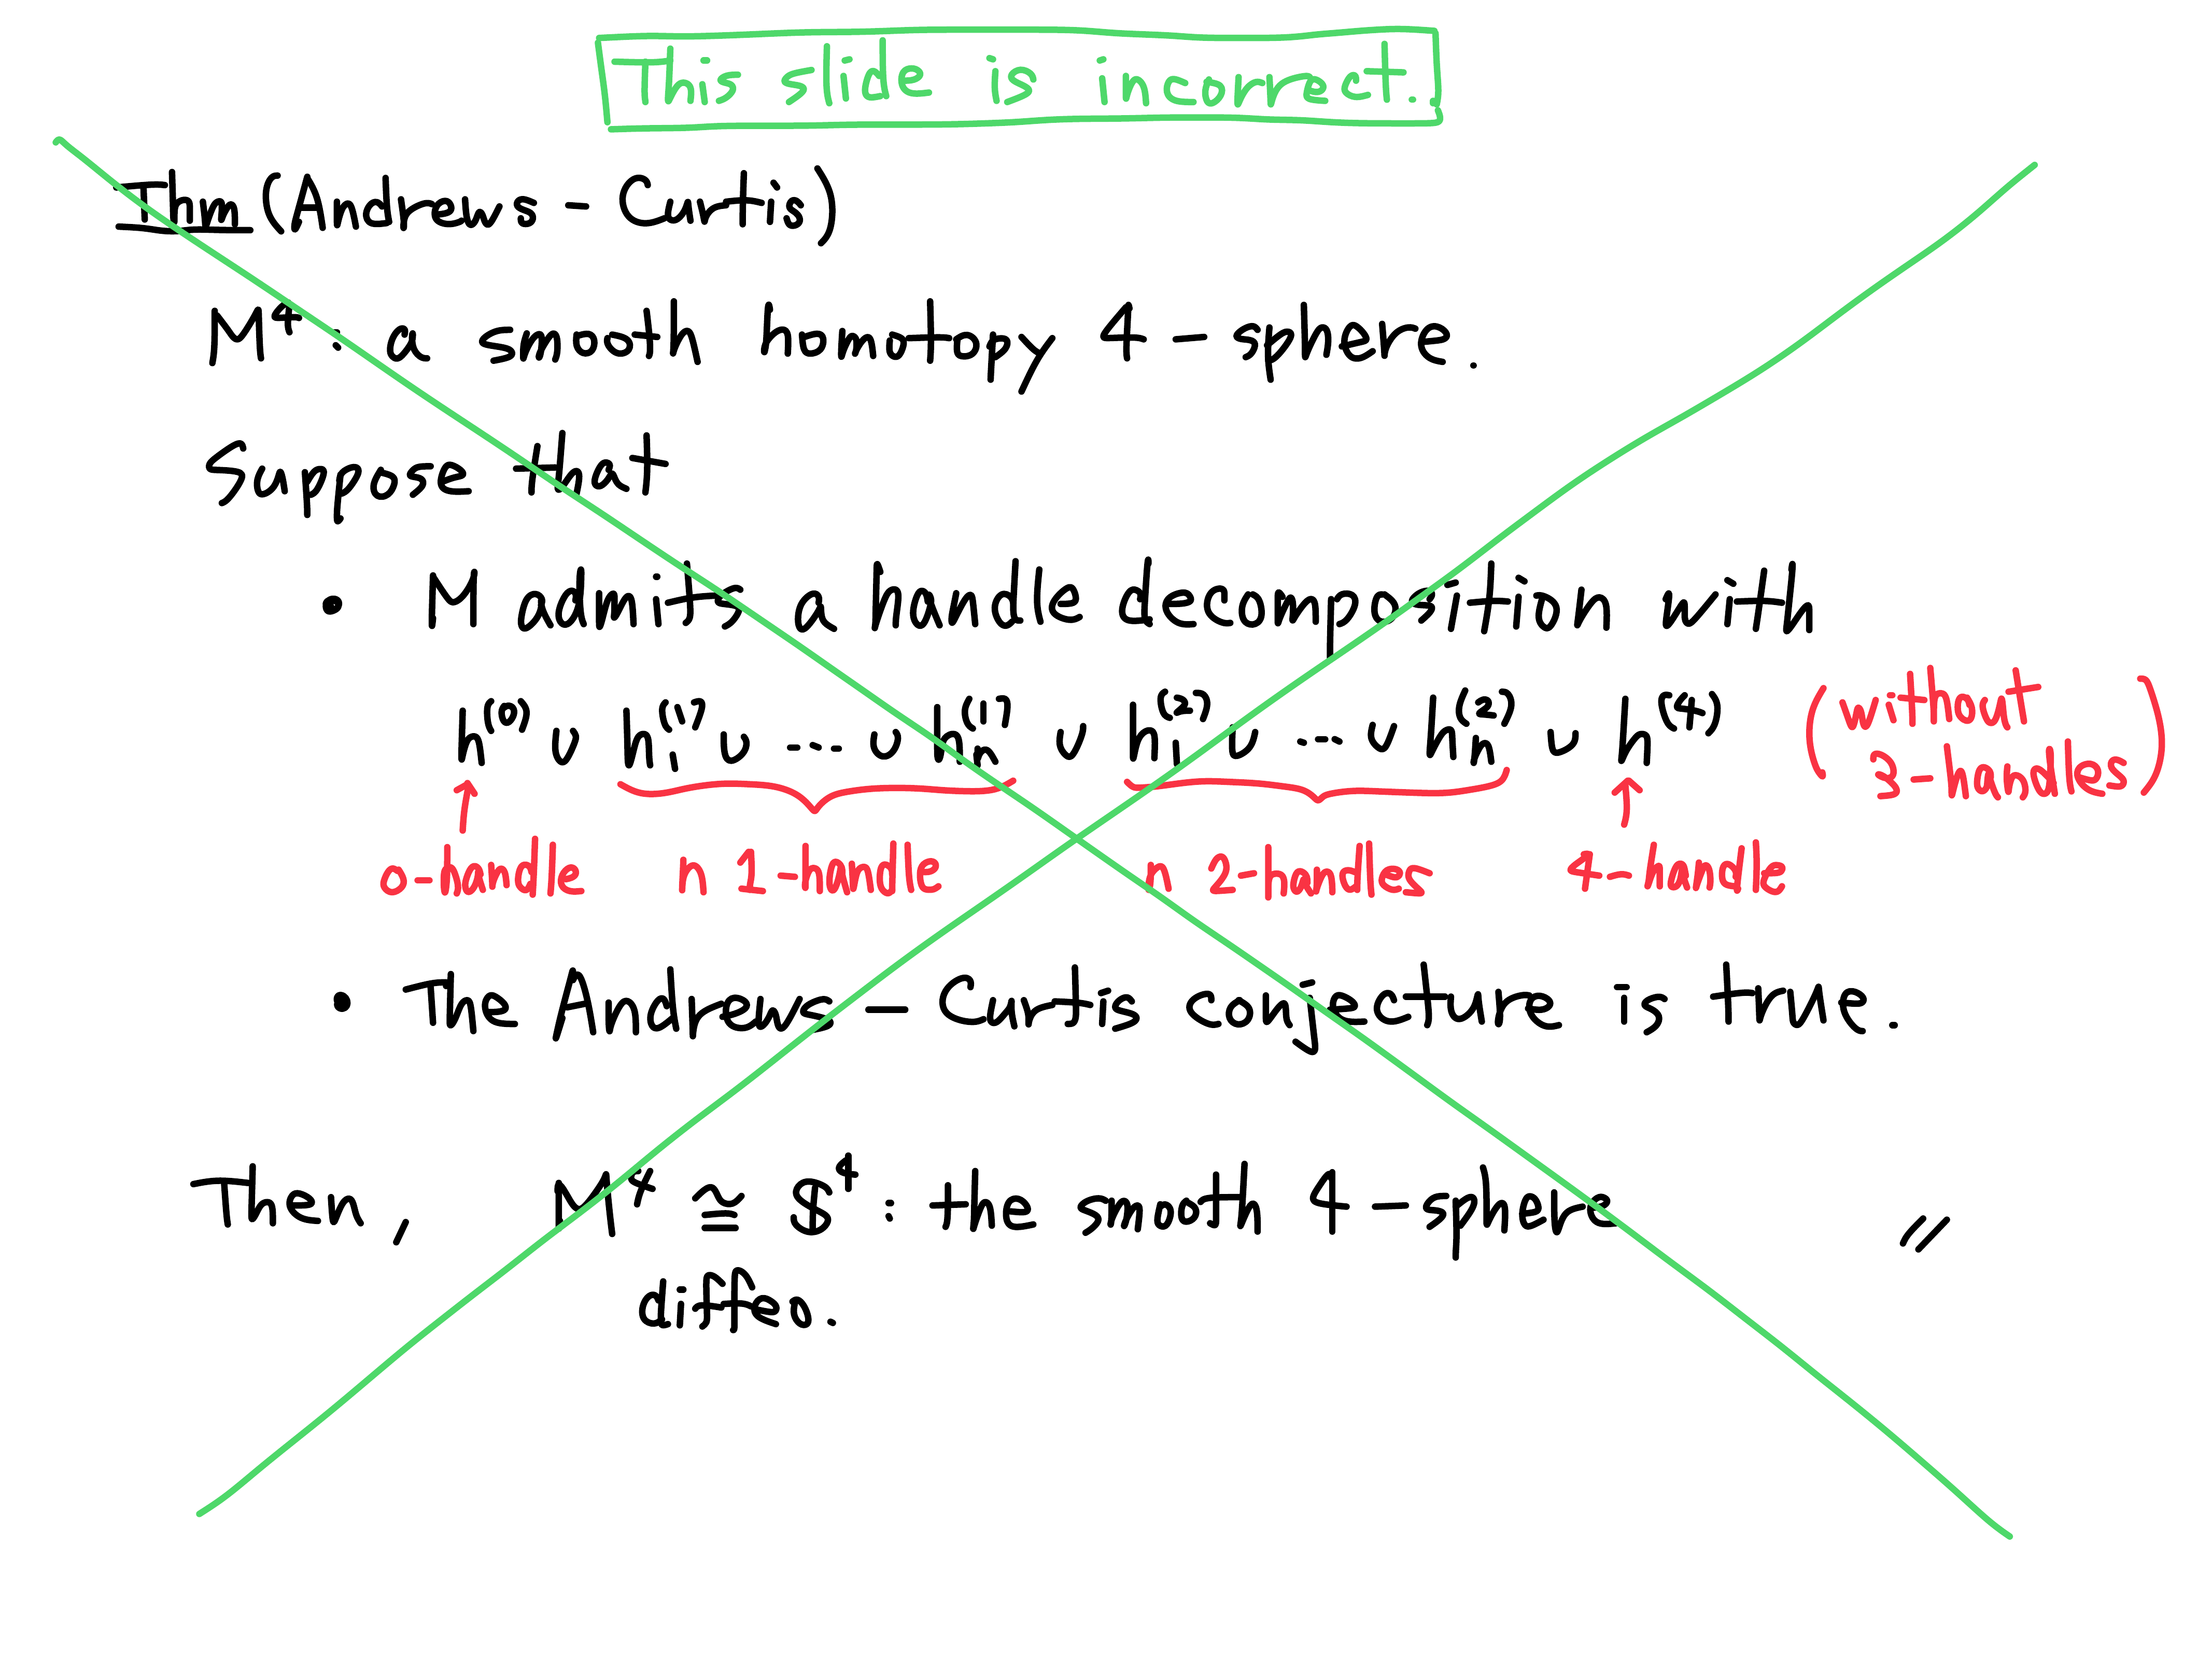 This slide is incorrect.
Thm (Andrews - Curtis)
M⁴ : a smooth homotopy 4-sphere.
Suppose that
• M admits a handle decomposition with
h⁽⁰⁾ ∪ h₁⁽¹⁾ ∪ ... ∪ hₙ⁽¹⁾ ∪ h₁⁽²⁾ ∪ ... ∪ hₙ⁽²⁾ ∪ h⁽⁴⁾ (without 3-handles)
0-handle n 1-handle n 2-handles 4-handle
• The Andrews - Curtis conjecture is true.
Then, M⁴ ≅ S⁴ : the smooth 4-sphere //
diffeo.